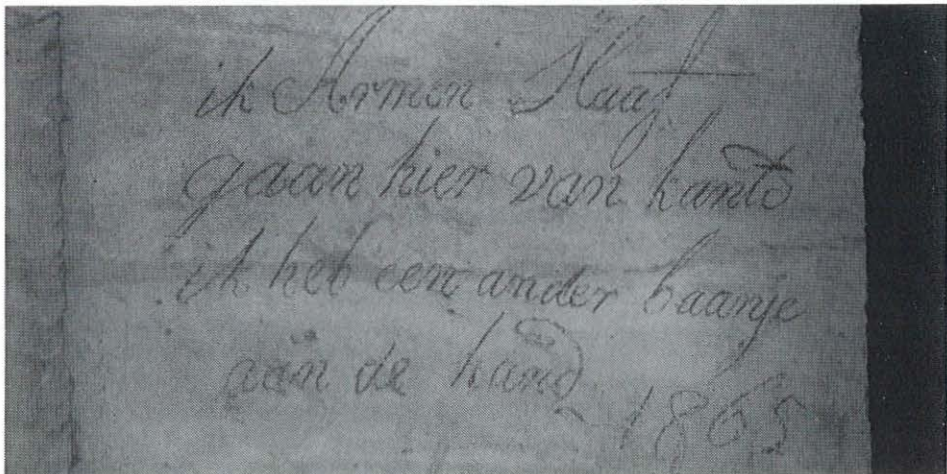 ik Armen Slaaf
gaan hier van kant
ik heb een ander baanje
aan de hand
1865